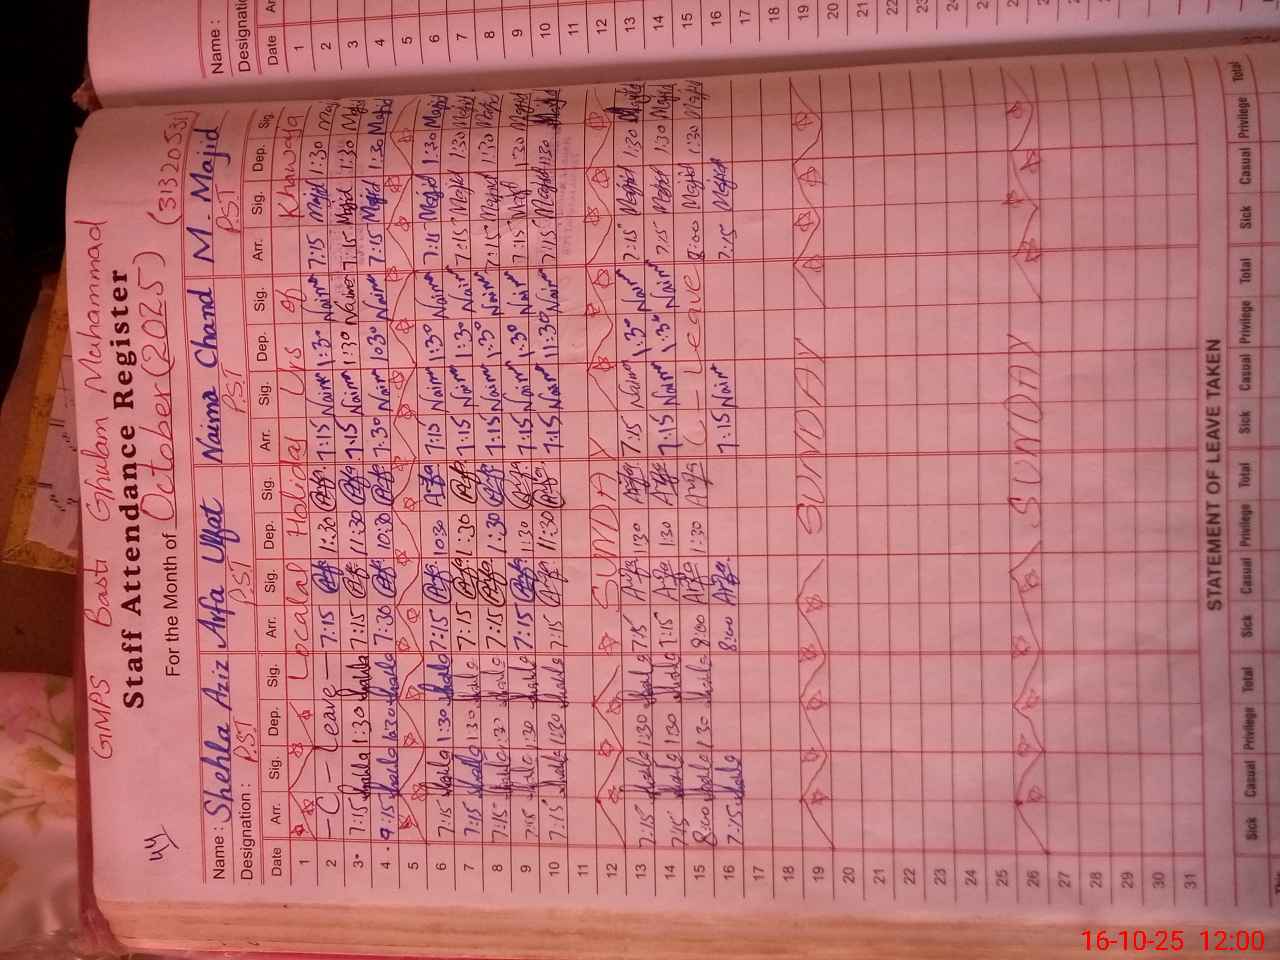 44
GMPS Basti Ghulam Muhammad
Staff Attendance Register
For the Month of October (2025) (31320531)
Name : Shehla Aziz Arfa Ulfat Naima Chand M. Majid
Designation : PST PST PST PST
Date Arr. Sig. Dep. Sig. Arr. Sig. Dep. Sig. Arr. Sig. Dep. Sig. Arr. Sig. Dep. Sig.
1 Localal Holiday Urs of Khawaja
2 - C - Leave - 7:15 Arfa 1:30 Arfa 7:15 Naima 1:30 Naima 7:15 Majid 1:30 Maj
3 7:15 Shahla 1:30 Shahla 7:15 Arfa 11:30 Arfa 7:15 Naima 1:30 Naima 7:15 Majid 1:30 Majid
4 9:15 Shahla 1:30 Shahla 7:30 Arfa 10:30 Arfa 7:30 Naima 10:30 Naima 7:15 Majid 1:30 Majid
5
6 7:15 Shahla 1:30 Shahla 7:15 Arfa 10:30 Arfa 7:15 Naima 1:30 Naima 7:15 Majid 1:30 Majid
7 7:15 Shahla 1:30 Shahla 7:15 Arfa 1:30 Arfa 7:15 Naima 1:30 Naima 7:15 Majid 1:30 Majid
8 7:15 Shahla 1:30 Shahla 7:15 Arfa 1:30 Arfa 7:15 Naima 1:30 Naima 7:15 Majid 1:30 Majid
9 7:15 Shahla 1:30 Shahla 7:15 Arfa 1:30 Arfa 7:15 Naima 1:30 Naima 7:15 Majid 1:30 Majid
10 7:15 Shahla 1:30 Shahla 7:15 Arfa 11:30 Arfa 7:15 Naima 11:30 Naima 7:15 Majid 11:30 Majid
11
12 SUNDAY
13 7:15 Shahla 1:30 Shahla 7:15 Arfa 1:30 Arfa 7:15 Naima 1:30 Naima 7:15 Majid 1:30 Majid
14 7:15 Shahla 1:30 Shahla 7:15 Arfa 1:30 Arfa 7:15 Naima 1:30 Naima 7:15 Majid 1:30 Majid
15 8:00 Shahla 1:30 Shahla 8:00 Arfa 1:30 Arfa C - Leave 8:00 Majid 1:30 Majid
16 7:15 Shahla 8:00 Arfa 7:15 Naima 7:15 Majid
17
18
19 SUNDAY
20
21
22
23
24
25
26 SUNDAY
27
28
29
30
31
STATEMENT OF LEAVE TAKEN
Sick Casual Privilege Total Sick Casual Privilege Total Sick Casual Privilege Total Sick Casual Privilege Total
Name :
Designation
Date Ar
1
2
3
4
5
6
7
8
9
10
11
12
13
14
15
16
17
18
19
20
21
22
23
24
16-10-25 12:00